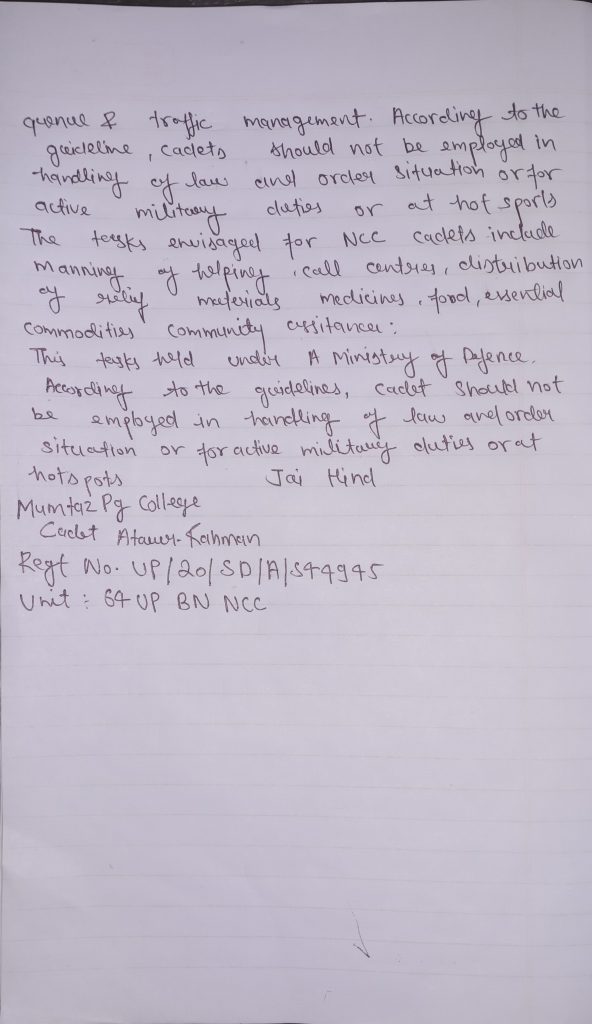 quenue & traffic management. According to the
guideline, cadets should not be employed in
handling of law and order situation or for
active military duties or at hot sports
The tasks envisaged for NCC cadets include
manning of helpiney, call centries, distribution
of relief materials medicines, food, essential
commodities community assitance:
This tasks held under A Ministry of Defence.
According to the guidelines, cadet should not
be employed in handling of law and order
situation or for active military duties or at
hotspots Jai Hind
Mumtaz Pg College
Cadet Ataur-Rahman
Regt No. UP/20/SD/A/544945
Unit : 64 UP BN NCC